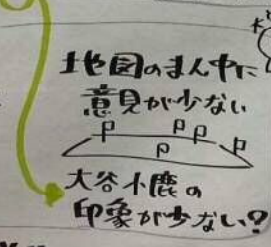 地図のまん中に
意見が少ない
大谷小鹿の
印象が少ない?